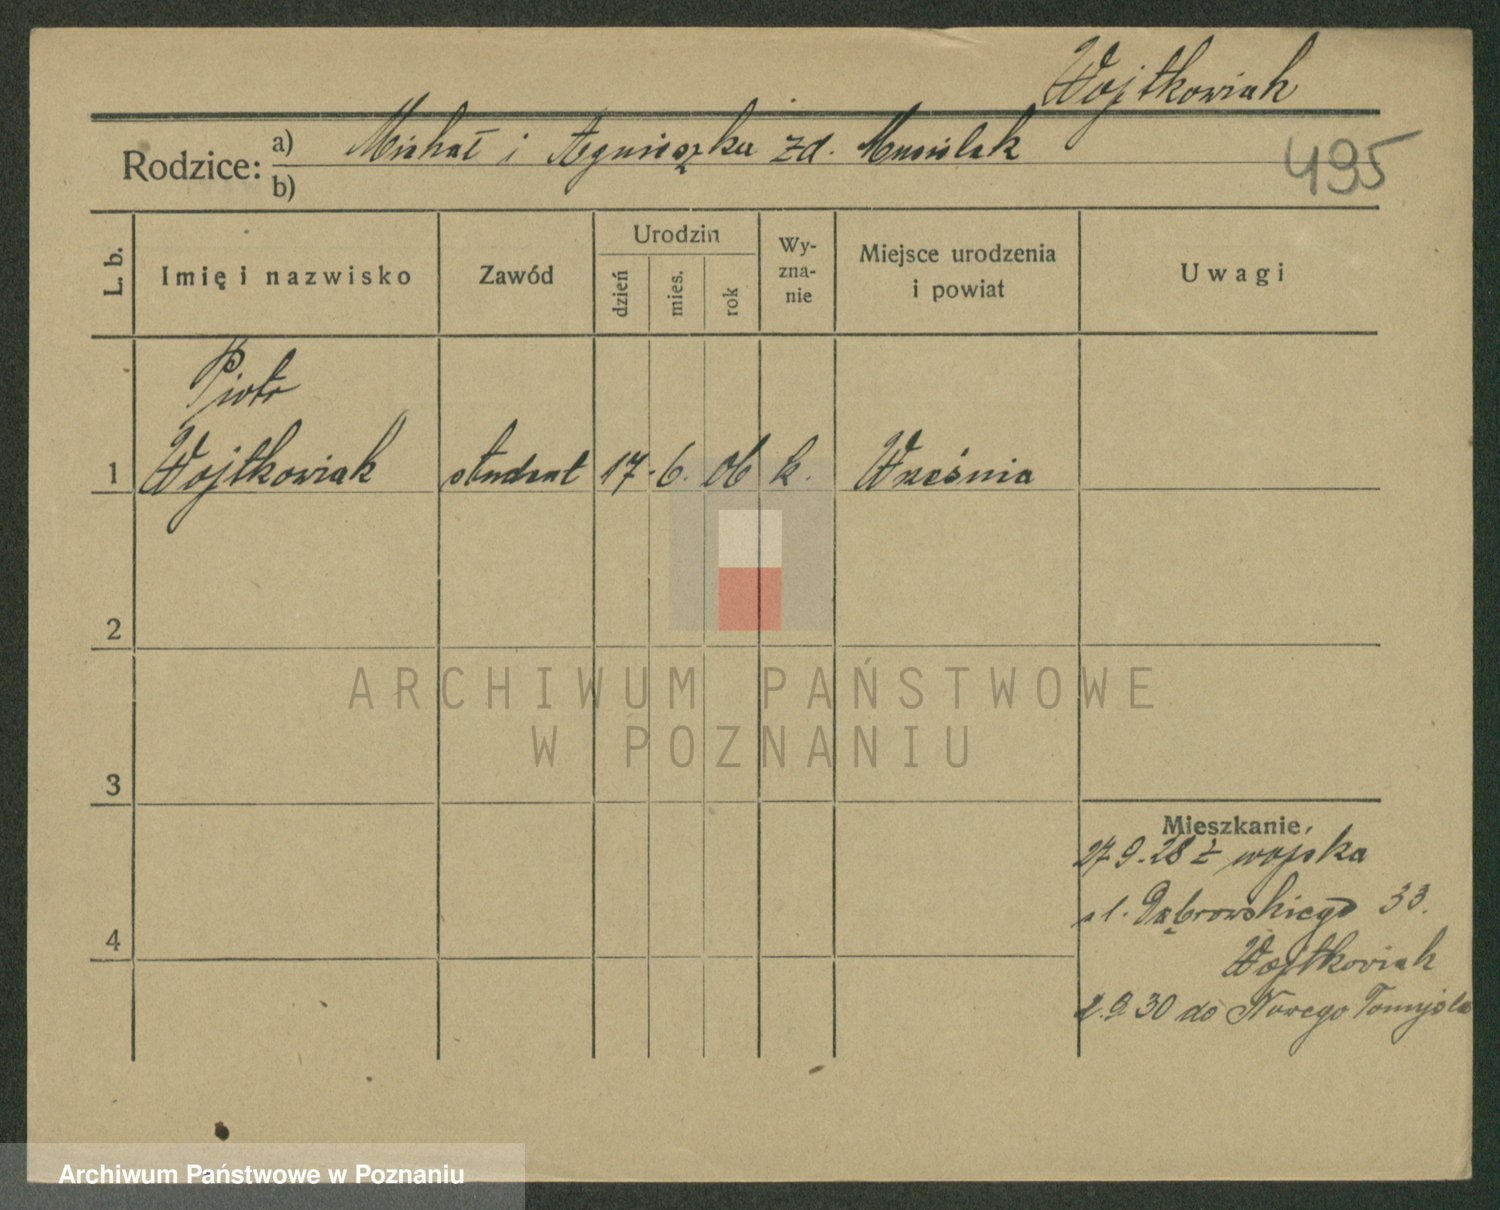 Wojtkowiak
Rodzice: a) Michał i Agnieszka zd. Musielak
b)
495
L. b.
Imię i nazwisko
Zawód
Urodzin
dzień
mies.
rok
Wy-
zna-
nie
Miejsce urodzenia
i powiat
Uwagi
Piotr
1 Wojtkowiak student 17. 6. 06 k. Września
2
ARCHIWUM PAŃSTWOWE
W POZNANIU
3
Mieszkanie,
27 9. 28 z wojska
ul. Dąbrowskiego 33.
Wojtkowiak
4
2.9 30 do Nowego Tomyśla
Archiwum Państwowe w Poznaniu